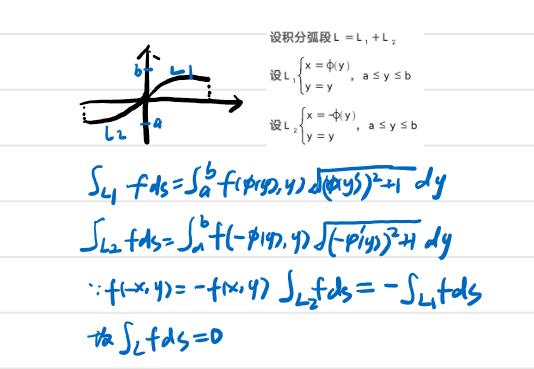 设积分弧段L=L₁+L₂
设L₁{x=ϕ(y) y=y, a≤y≤b
设L₂{x=-ϕ(y) y=y, a≤y≤b
b
L1
a
L2
∫_{L1} fds=∫_a^b f(φ(y),y)√((φ(y)')²+1) dy
∫_{L2} fds=∫_a^b f(-φ(y),y)√((-φ'(y))²+1) dy
∵f(-x,y)=-f(x,y) ∫_{L2}fds=-∫_{L1}fds
故∫_L fds=0